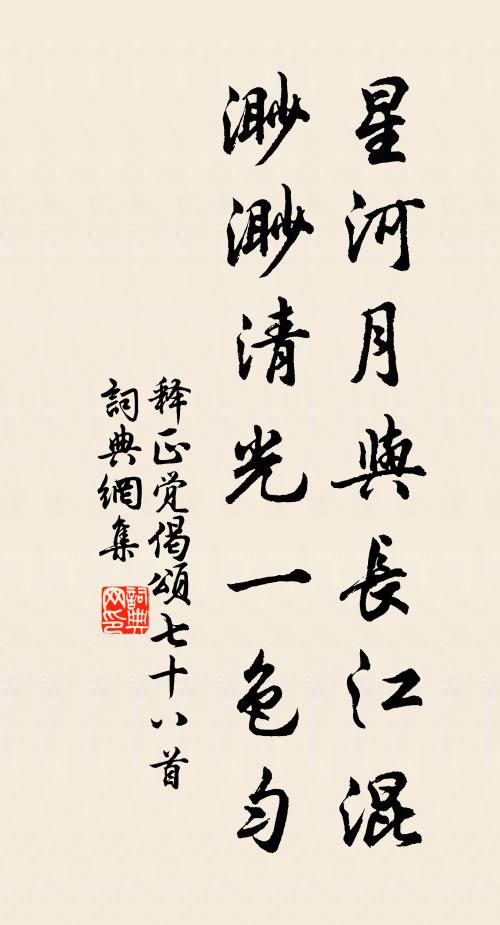 星河月與長江混
渺渺清光一色勻
释正觉偈頌七十八首
詞典網集
詞典
网印